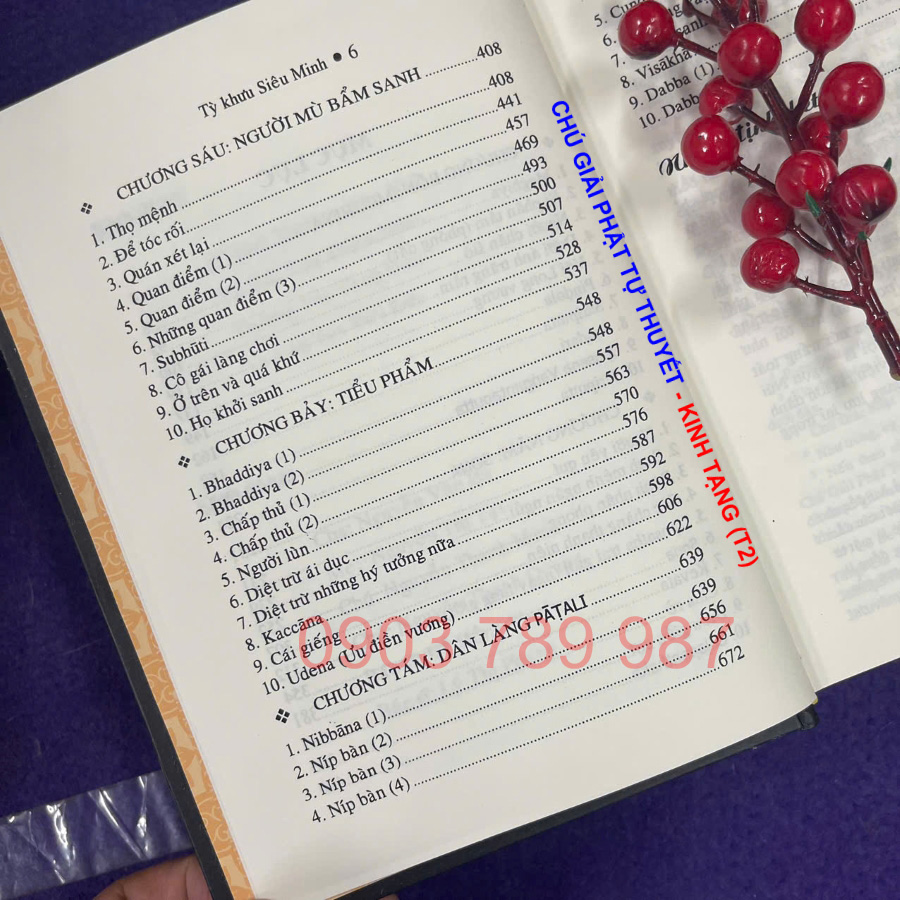 Tỳ khưu Siêu Minh ● 6
❖ CHƯƠNG SÁU: NGƯỜI MÙ BẨM SANH ..........408
1. Thọ mệnh ..........408
2. Để tóc rối ..........441
3. Quán xét lại ..........457
4. Quan điểm (1) ..........469
5. Quan điểm (2) ..........493
6. Những quan điểm (3) ..........500
7. Subhūti ..........507
8. Cô gái làng chơi ..........514
9. Ở trên và quá khứ ..........528
10. Họ khởi sanh ..........537
❖ CHƯƠNG BẢY: TIỂU PHẨM ..........548
1. Bhaddiya (1) ..........548
2. Bhaddiya (2) ..........557
3. Chấp thủ (1) ..........563
4. Chấp thủ (2) ..........570
5. Người lùn ..........576
6. Diệt trừ ái dục ..........587
7. Diệt trừ những hý tưởng nữa ..........592
8. Kaccāna ..........598
9. Cái giếng ..........606
10. Udena (Ưu điền vương) ..........622
❖ CHƯƠNG TÁM: DÂN LÀNG PĀTALI ..........639
1. Nibbāna (1) ..........639
2. Níp bàn (2) ..........656
3. Níp bàn (3) ..........661
4. Níp bàn (4) ..........672
5.
6.
7.
8. Visākhā
9. Dabba (1)
10.
CHÚ GIẢI PHẬT TỰ THUYẾT - KINH TẠNG (T2)
0903 789 987